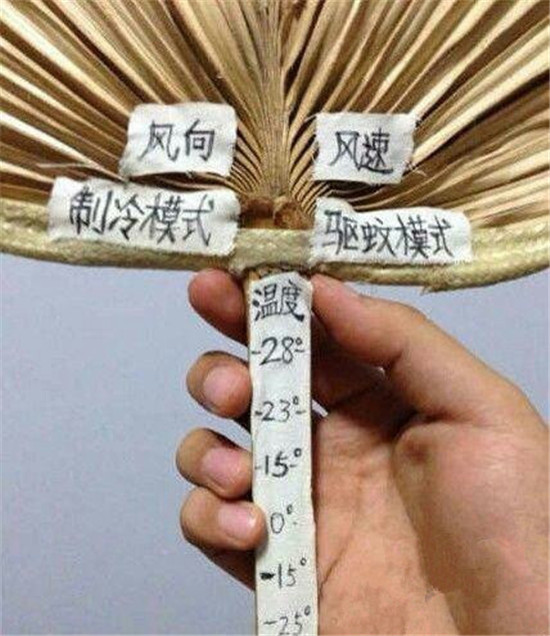 风向
风速
制冷模式
驱蚊模式
温度
-28°
-23°
-15°
0°
-15°
-25°